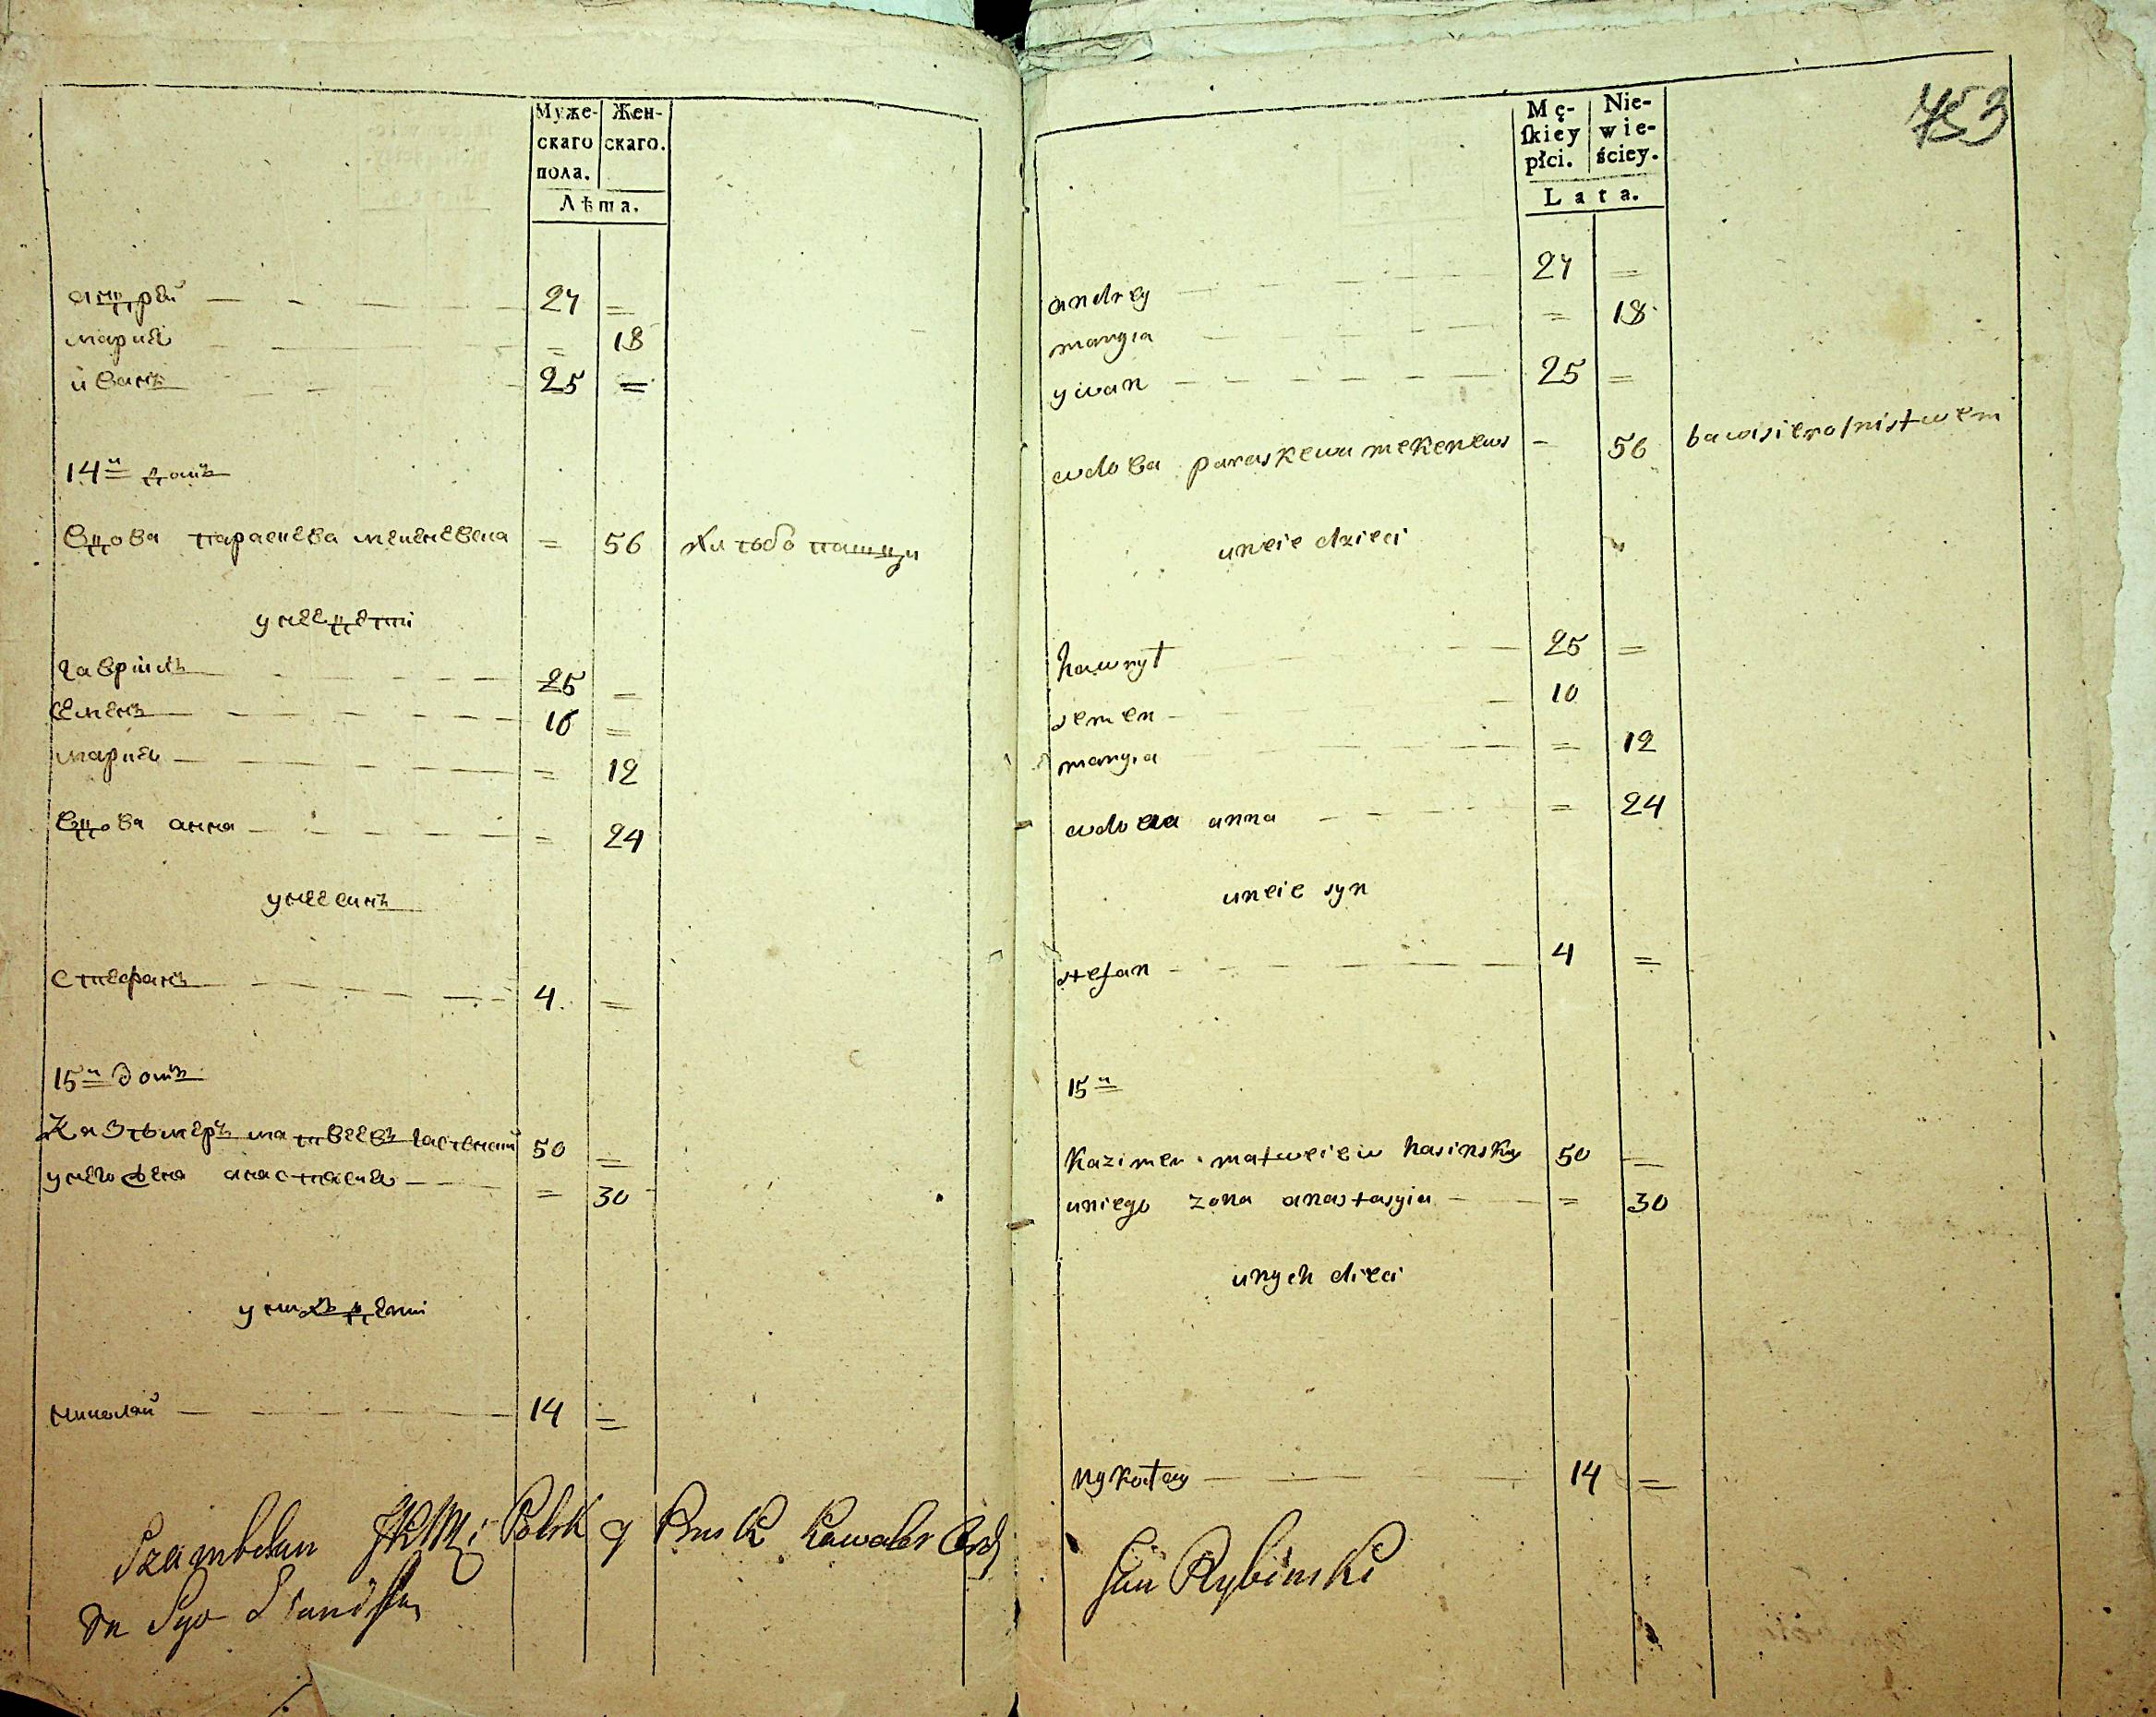 Муже-
скаго
пола.
Жен-
скаго.
Лѣта.
андрѣй 27 =
мария = 18
иванъ 25 =
14й домъ
вдова параскева мекеневена = 56 хлѣбопашци
у нее дети
гаврилъ 25 =
семенъ 10 =
мария = 12
вдова анна = 24
у нее синъ
стефанъ 4 =
15й домъ
Казѣмеръ матвеевъ гасинский 50 =
у него жена анастасия = 30
у нихъ дети
николай 14 =
Szambelan JKMci Polsk y Prusk Kawaler Ord
Sn
753
Mę-
ſkiey
płci.
Nie-
wie-
ściey.
Lata.
andrey 27 =
maryia = 18
ywan 25 =
wdova paraskewa mekenews - 56 bawisie rolnistwem
uneie dzieci
hawrył 25 =
semen 10
maryia = 12
wdowa anna = 24
uneie syn
stefan 4 =
15й
Kazimer matweiew hasinsky 50 =
uniego zona anastasyia = 30
unych dieci
Nykołay 14 =
Jan Rybinski